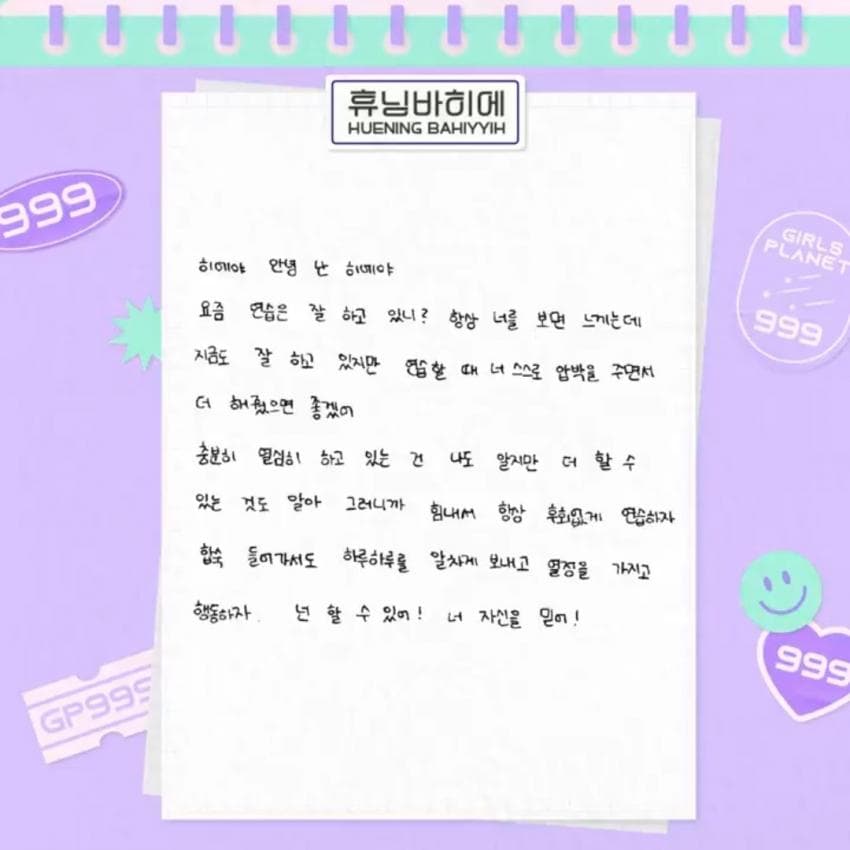 휴닝바히에
HUENING BAHIYYIH
999
GIRLS
PLANET
999
히에야 안녕 난 히에야
요즘 연습은 잘 하고 있니? 항상 너를 보면 느끼는데
지금도 잘 하고 있지만 연습할 때 너 스스로 압박을 주면서
더 해줬으면 좋겠어
충분히 열심히 하고 있는 건 나도 알지만 더 할 수
있는 것도 알아 그러니까 힘내서 항상 후회없게 연습하자
합숙 들어가서도 하루하루를 알차게 보내고 열정을 가지고
행동하자. 넌 할 수 있어! 너 자신을 믿어!
999
GP999